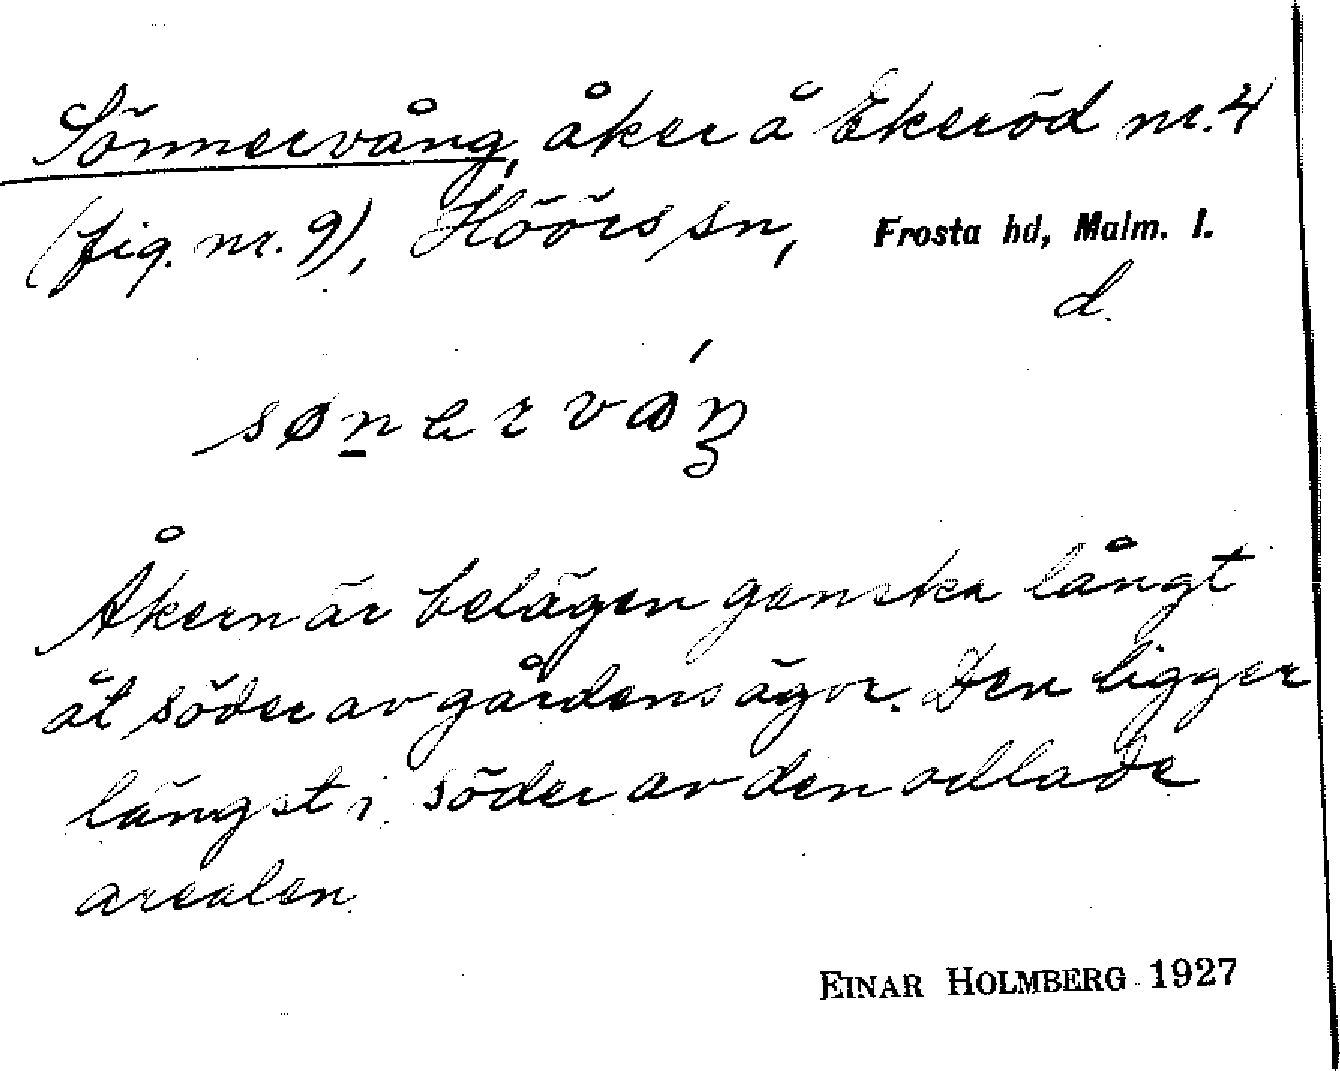 Sönnervång, åker å Ekeröd nr. 4
(fig. nr. 9), Höörs sn, Frosta hd, Malm. l.
d.
sønervåŋ
Åkern är belägen ganska långt
åt söder av gårdens ägor. Den ligger
längst i söder av den odlade
arealen.
EINAR HOLMBERG 1927